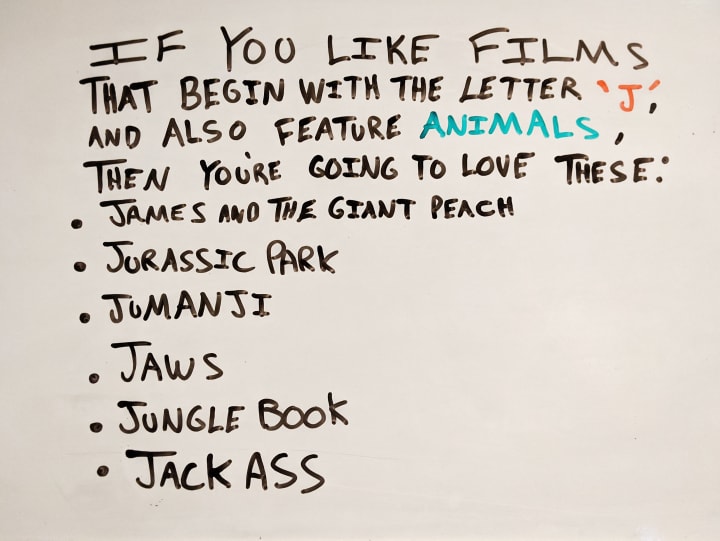 IF YOU LIKE FILMS
THAT BEGIN WITH THE LETTER 'J',
AND ALSO FEATURE ANIMALS,
THEN YOU'RE GOING TO LOVE THESE:
• JAMES AND THE GIANT PEACH
• JURASSIC PARK
• JUMANJI
• JAWS
• JUNGLE BOOK
• JACK ASS